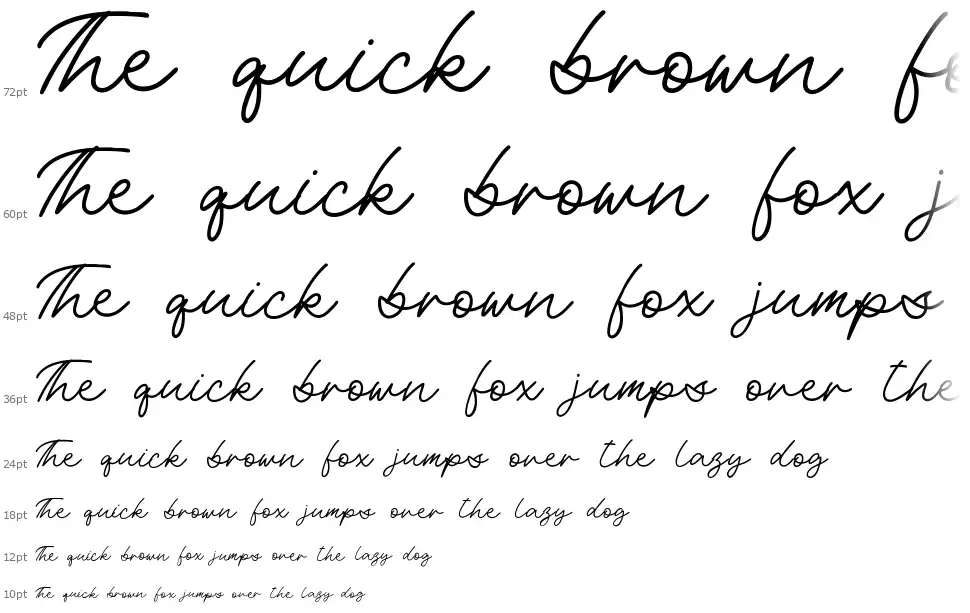 72pt The quick brown fo
60pt The quick brown fox j
48pt The quick brown fox jumps
36pt The quick brown fox jumps over the
24pt The quick brown fox jumps over the lazy dog
18pt The quick brown fox jumps over the lazy dog
12pt The quick brown fox jumps over the lazy dog
10pt The quick brown fox jumps over the lazy dog